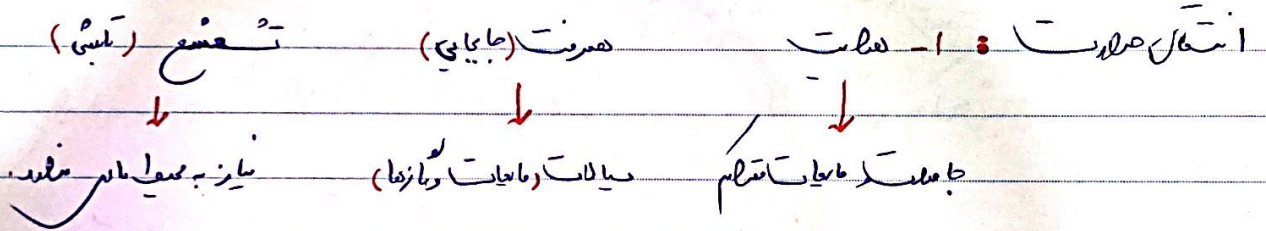 انتقال حرارت : ۱- هدایت همرفت (جابجایی) تشعشع (تابشی)
جامدات مایعات متراکم سیالات (مایعات و گازها) نیاز به محیط مادی ندارد.